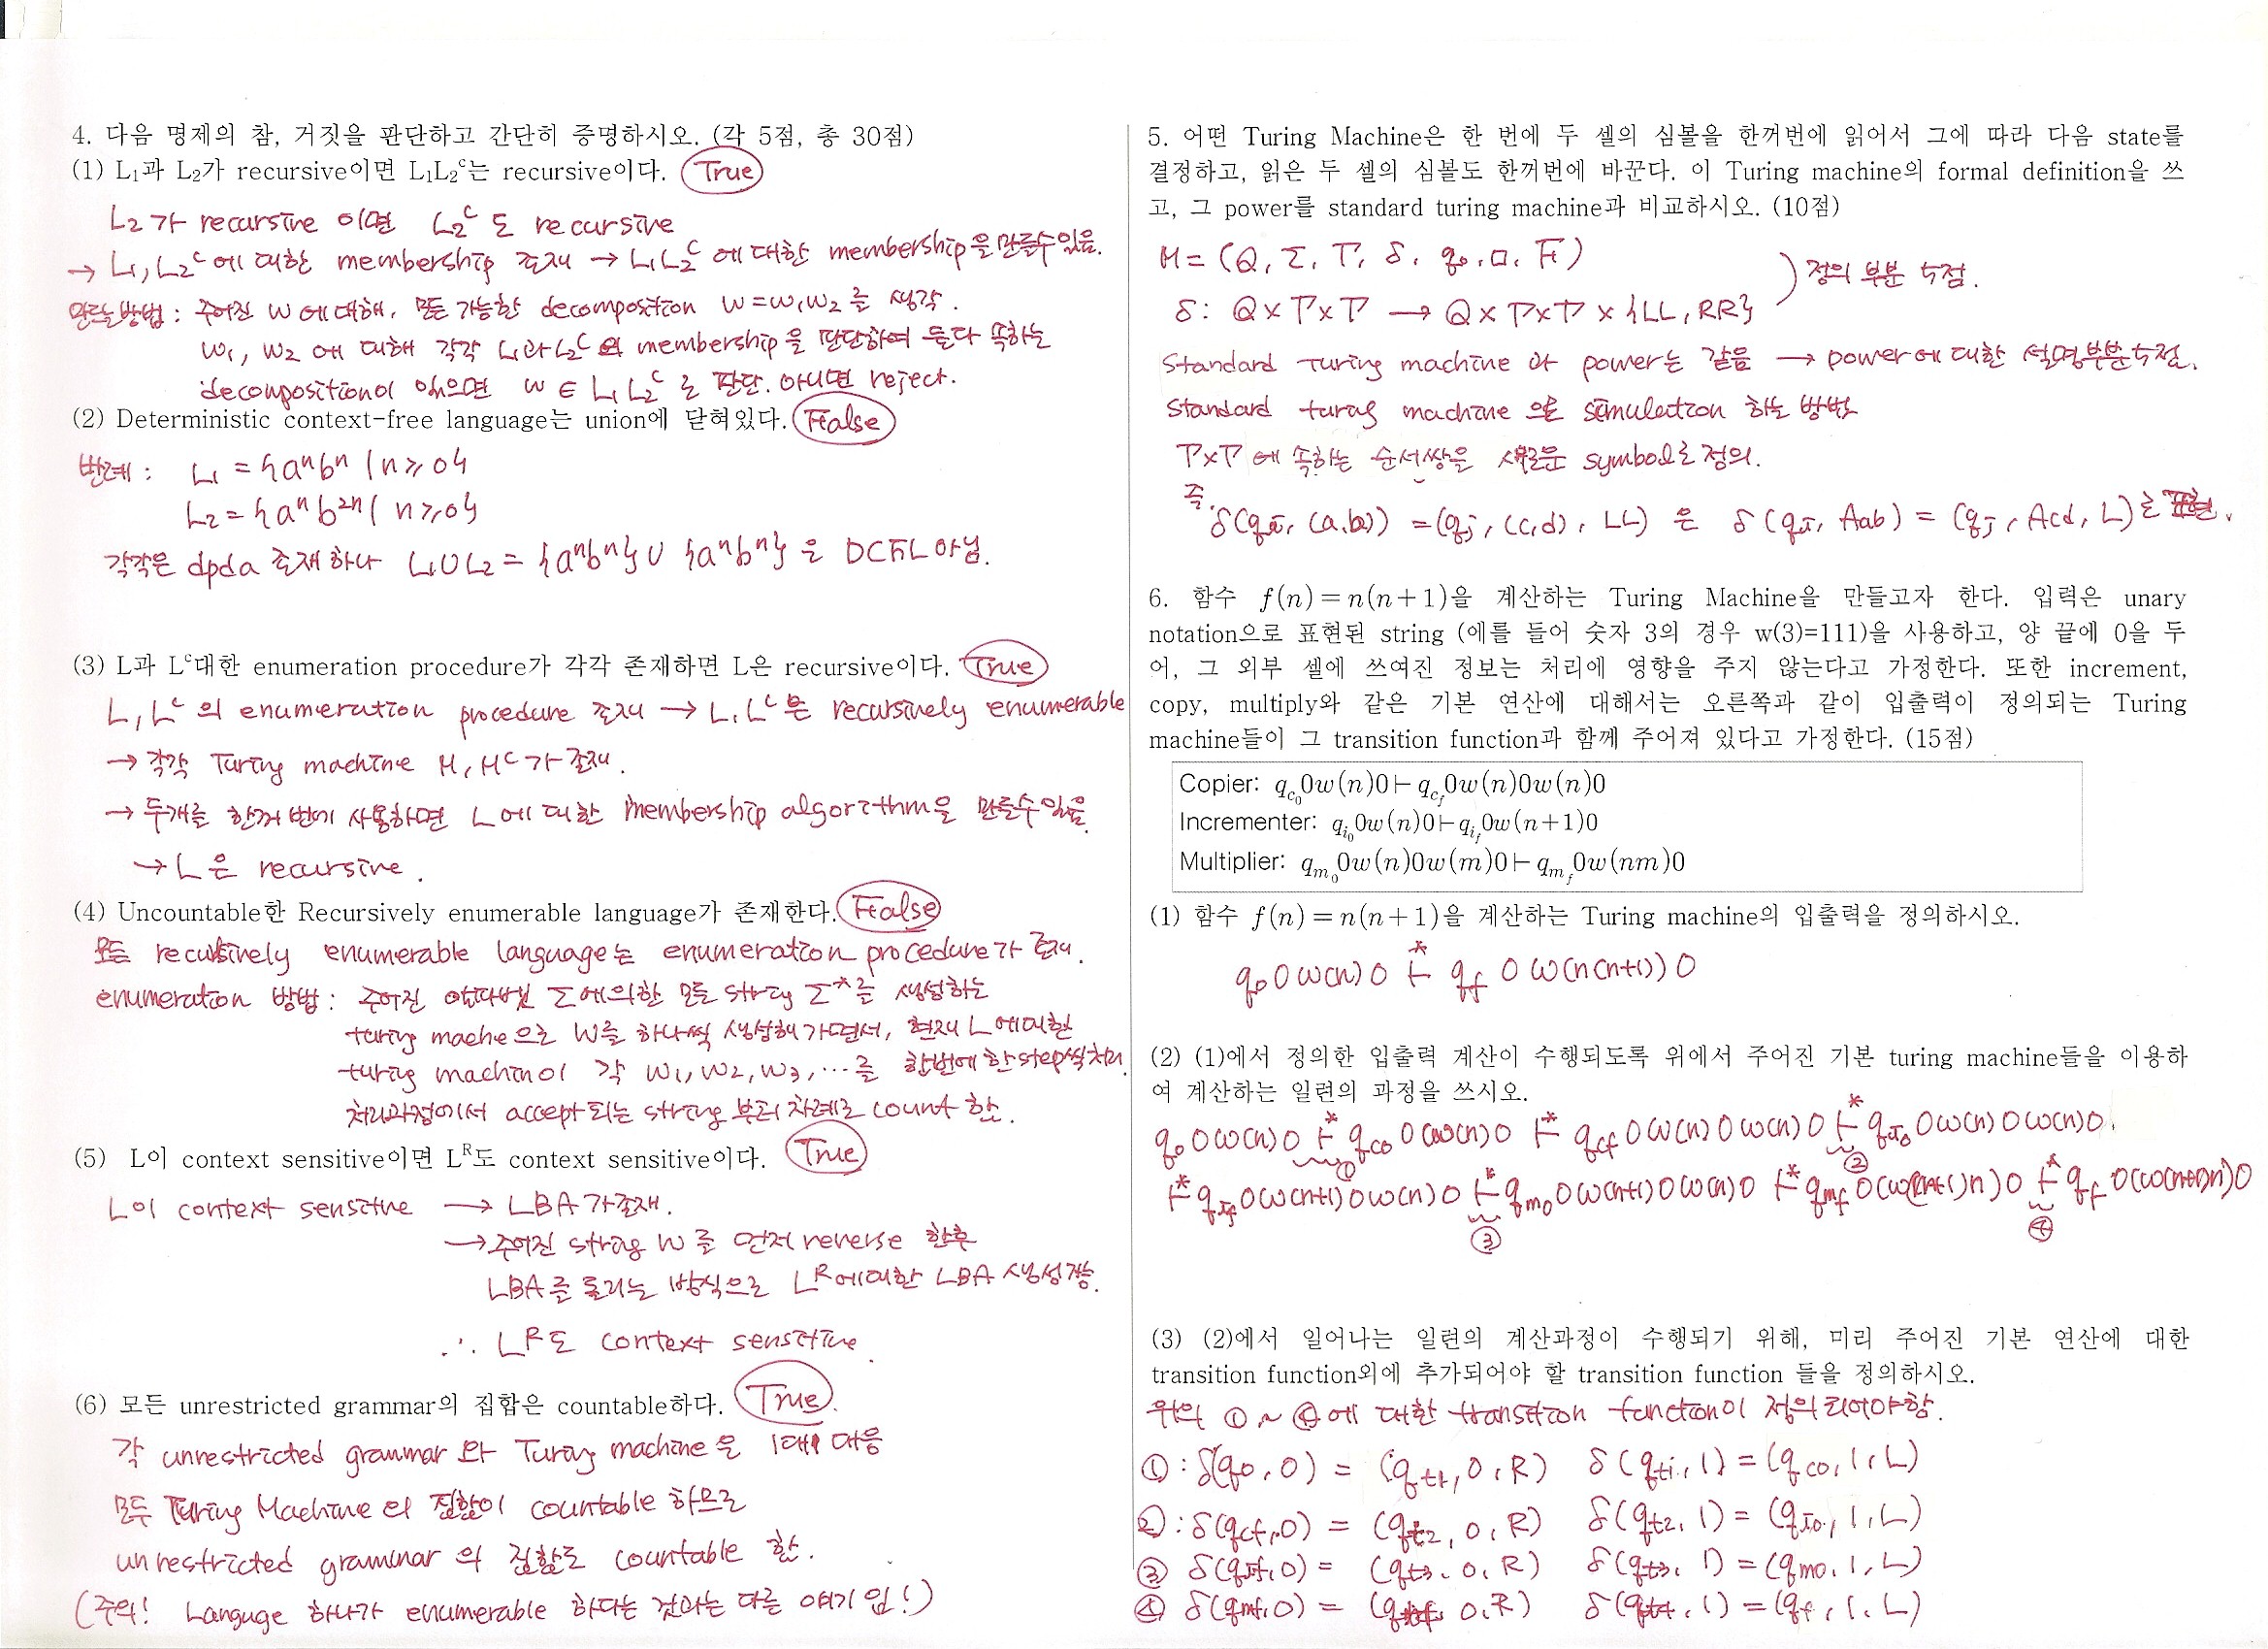 4. 다음 명제의 참, 거짓을 판단하고 간단히 증명하시오. (각 5점, 총 30점)
(1) L₁과 L₂가 recursive이면 L₁L₂ᶜ는 recursive이다. True
L₂가 recursive 이면 L₂ᶜ도 recursive
→ L₁, L₂ᶜ에 대한 membership 존재 → L₁L₂ᶜ에 대한 membership을 만들수있음.
만드는방법 : 주어진 w에대해, 모든 가능한 decomposition w=w₁w₂를 생각.
w₁, w₂에 대해 각각 L₁과L₂ᶜ의 membership을 판단하여 둘다 속하는
decomposition이 있으면 w ∈ L₁L₂ᶜ로 판단. 아니면 reject.
(2) Deterministic context-free language는 union에 닫혀있다. False
반례 : L₁ = {aⁿbⁿ | n≥0}
L₂ = {aⁿb²ⁿ | n≥0}
각각은 dpda 존재하나 L₁∪L₂ = {aⁿbⁿ}∪{aⁿbⁿ}은 DCFL아님.
(3) L과 Lᶜ대한 enumeration procedure가 각각 존재하면 L은 recursive이다. True
L, Lᶜ의 enumeration procedure 존재 → L, Lᶜ은 recursively enumerable
→ 각각 Turing machine M, Mᶜ가 존재.
→ 두개를 한꺼번에 사용하면 L에 대한 membership algorithm을 만들수있음.
→ L은 recursive.
(4) Uncountable한 Recursively enumerable language가 존재한다. False
모든 recursively enumerable language는 enumeration procedure가 존재.
enumeration 방법 : 주어진 알파벳 Σ에의한 모든 string Σ*를 생성하는
turing machine으로 w를 하나씩 생성해가면서, 현재 L에대한
turing machine이 각 w₁, w₂, w₃, …를 한번에한step씩처리.
처리과정에서 accept되는 string부터 차례로 count 함.
(5) L이 context sensitive이면 Lᴿ도 context sensitive이다. True
L이 context sensitive → LBA가존재.
→ 주어진 string w를 먼저 reverse 한후
LBA를 돌리는 방식으로 Lᴿ에대한 LBA 생성가능.
∴ Lᴿ도 context sensitive.
(6) 모든 unrestricted grammar의 집합은 countable하다. True.
각 unrestricted grammar와 Turing machine을 1대1 대응
모두 Turing Machine의 집합이 countable 하므로
unrestricted grammar의 집합도 countable 함.
(주의! Languge 하나가 enumerable 하다는 것과는 다른 얘기임!)
5. 어떤 Turing Machine은 한 번에 두 셀의 심볼을 한꺼번에 읽어서 그에 따라 다음 state를
결정하고, 읽은 두 셀의 심볼도 한꺼번에 바꾼다. 이 Turing machine의 formal definition을 쓰
고, 그 power를 standard turing machine과 비교하시오. (10점)
M = (Q, Σ, Γ, δ, q₀, □, F)
δ : Q×Γ×Γ → Q×Γ×Γ×{LL, RR}
) 정의 부분 5점.
Standard Turing machine 과 power는 같음 → power에 대한 설명부분5점.
Standard turing machine 으로 simulation 하는 방법
Γ×Γ에 속하는 순서쌍을 새로운 symbol로정의.
즉, δ(qi, (a,b)) = (qj, (c,d), LL) 은 δ(qi, Aab) = (qj, Acd, L)로 표현.
6. 함수 f(n)=n(n+1)을 계산하는 Turing Machine을 만들고자 한다. 입력은 unary
notation으로 표현된 string (에를 들어 숫자 3의 경우 w(3)=111)을 사용하고, 양 끝에 0을 두
어, 그 외부 셀에 쓰여진 정보는 처리에 영향을 주지 않는다고 가정한다. 또한 increment,
copy, multiply와 같은 기본 연산에 대해서는 오른쪽과 같이 입출력이 정의되는 Turing
machine들이 그 transition function과 함께 주어져 있다고 가정한다. (15점)
Copier: q_c₀0w(n)0⊢q_cf0w(n)0w(n)0
Incrementer: q_i₀0w(n)0⊢q_if0w(n+1)0
Multiplier: q_m₀0w(n)0w(m)0⊢q_mf0w(nm)0
(1) 함수 f(n)=n(n+1)을 계산하는 Turing machine의 입출력을 정의하시오.
q₀0w(n)0 ⊢* qf 0w(n(n+1))0
(2) (1)에서 정의한 입출력 계산이 수행되도록 위에서 주어진 기본 turing machine들을 이용하
여 계산하는 일련의 과정을 쓰시오.
q₀0w(n)0 ⊢* qc₀0w(n)0 ⊢* qcf0w(n)0w(n)0 ⊢* qI₀0w(n)0w(n)0
① ②
⊢* qIf0w(n+1)0w(n)0 ⊢* qm₀0w(n+1)0w(n)0 ⊢* qmf0(w((n+1)n)0 ⊢* qf0(w(n+1)n)0
③ ④
(3) (2)에서 일어나는 일련의 계산과정이 수행되기 위해, 미리 주어진 기본 연산에 대한
transition function외에 추가되어야 할 transition function 들을 정의하시오.
위의 ①~④에 대한 transition function이 정의되어야함.
① : δ(q₀, 0) = (qt₁, 0, R) δ(qt₁, 1) = (qc₀, 1, L)
② : δ(qcf, 0) = (qt₂, 0, R) δ(qt₂, 1) = (qI₀, 1, L)
③ δ(qIf, 0) = (qt₃, 0, R) δ(qt₃, 1) = (qm₀, 1, L)
④ δ(qmf, 0) = (qt₄, 0, R) δ(qt₄, 1) = (qf, 1, L)